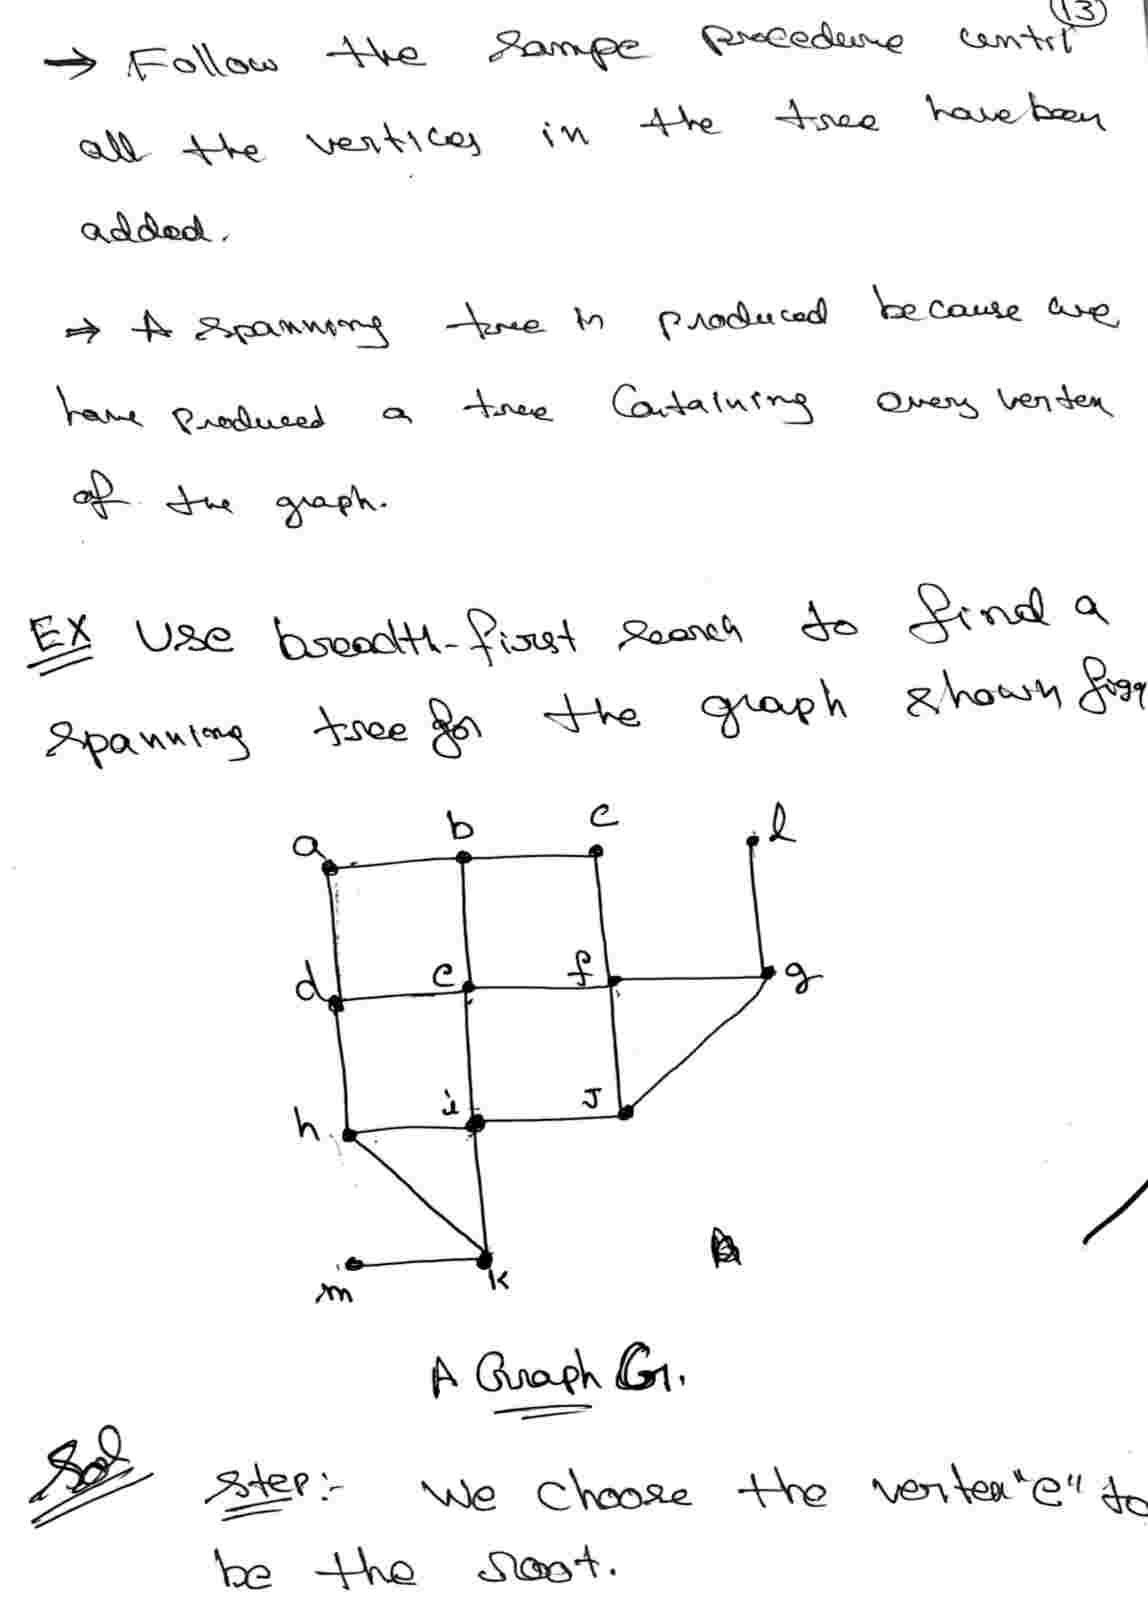 13
→ Follow the sampe procedure until
all the vertices in the tree have been
added.
⇒ A spanning tree is produced because we
have produced a tree Containing every vertex
of the graph.
EX Use breadth-first search to find a
spanning tree for the graph shown
a b c l
d e f g
h i J
m k
A Graph G.
Sol Step:- We choose the vertex "e" to
be the root.